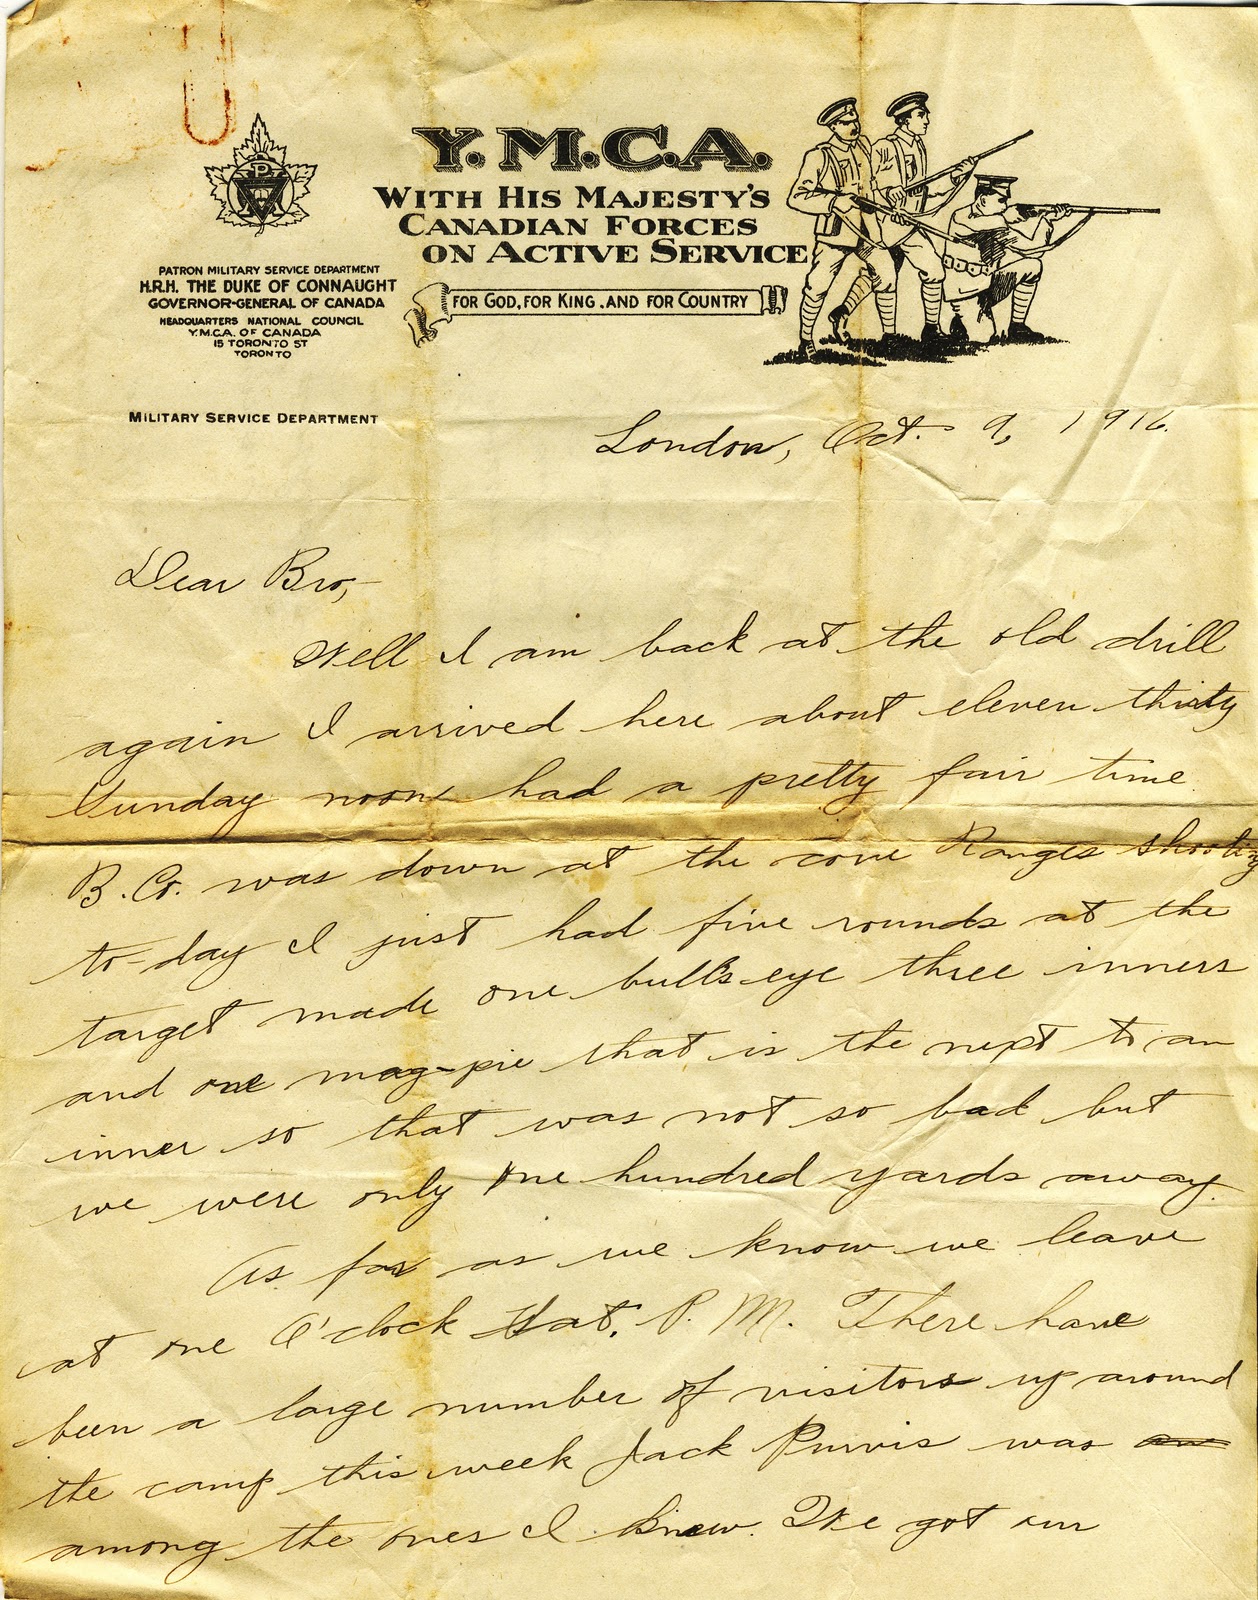 Y.M.C.A.
WITH HIS MAJESTY'S
CANADIAN FORCES
ON ACTIVE SERVICE
FOR GOD, FOR KING. AND FOR COUNTRY
P
PATRON MILITARY SERVICE DEPARTMENT
H.R.H. THE DUKE OF CONNAUGHT
GOVERNOR-GENERAL OF CANADA
HEADQUARTERS NATIONAL COUNCIL
Y.M.C.A. OF CANADA
15 TORONTO ST
TORONTO
MILITARY SERVICE DEPARTMENT
London, Oct. 9, 1916.
Dear Bro,
Well I am back at the old drill
again I arrived here about eleven thirty
Sunday noon had a pretty fair time
B. Co. was down at the cove Ranges shooting
to-day I just had five rounds at the
target made one bull's eye three inners
and one mag-pie that is the next to an
inner so that was not so bad but
we were only one hundred yards away.
As far as we know we leave
at one O'clock Sat. P. M. There have
been a large number of visitors up around
the camp this week Jack Purvis was
among the ones I knew. We got our